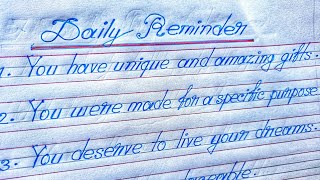 Daily Reminder
1. You have unique and amazing gifts.
2. You were made for a specific purpose
3. You deserve to live your dreams.